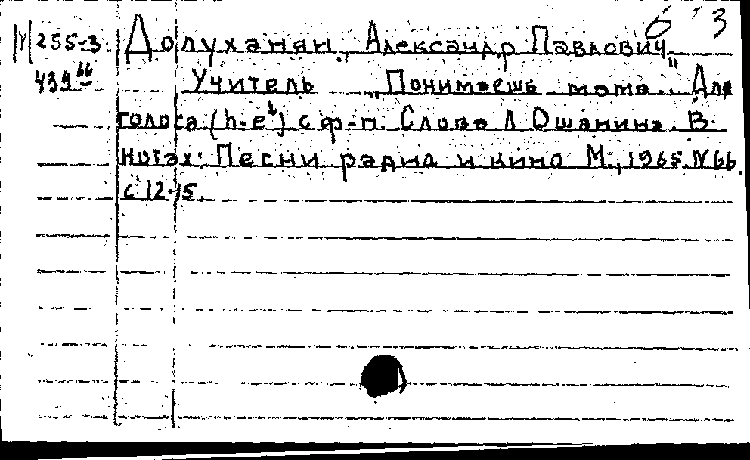 6 3
М 255-3 Долуханян, Александр Павлович
439 66 Учитель „Понимаешь мама.." Для
голоса (h-e²) с ф-п. Слова Л Ошанина. В
нотах: Песни радио и кино М., 1965. N66.
с 12-15.